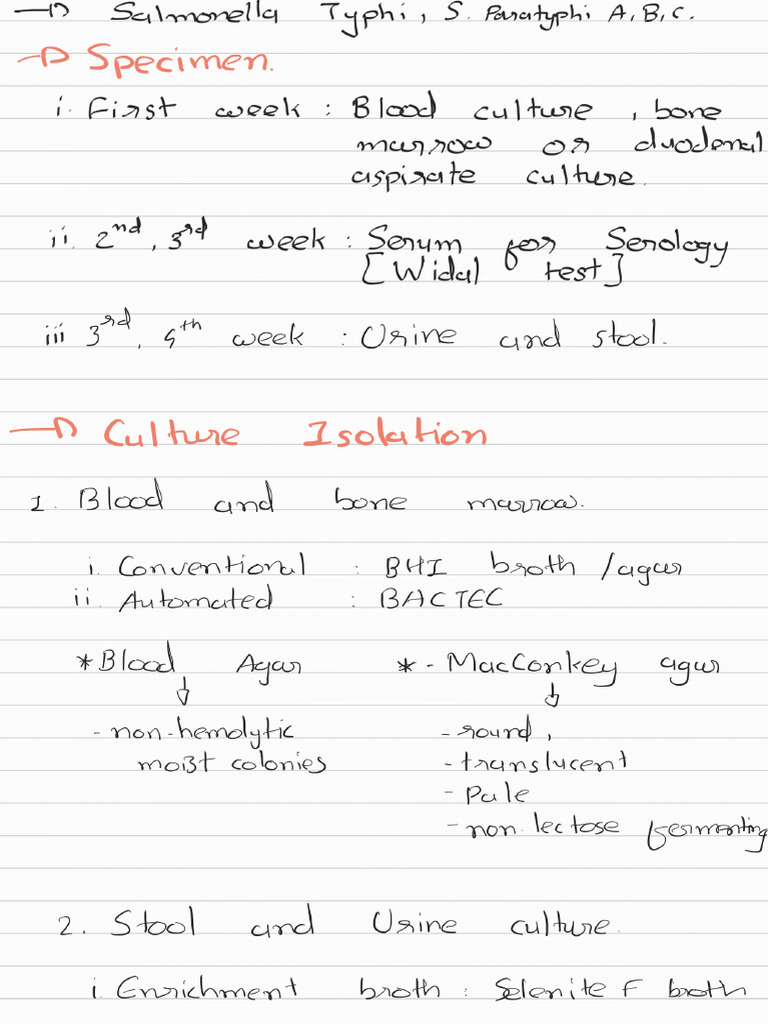 → Salmonella Typhi, S. Paratyphi A, B, C.
→ Specimen.
i. First week : Blood culture, bone
marrow or duodenal
aspirate culture.
ii. 2nd, 3rd week : Serum for Serology
[Widal test]
iii 3rd, 4th week : Urine and stool.
→ Culture Isolation
1. Blood and bone marrow.
i. Conventional : BHI broth /agar
ii. Automated : BACTEC
* Blood Agar * - MacConkey agar
↓ ↓
- non-hemolytic - round,
moist colonies - translucent
- Pale
- non lectose fermenting
2. Stool and Urine culture.
i. Enrichment broth : Selenite F broth